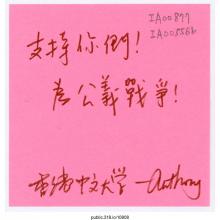 IA00877
支持你們！
為公義戰爭！
香港中文大学 —Anthony
public.318.io/10908